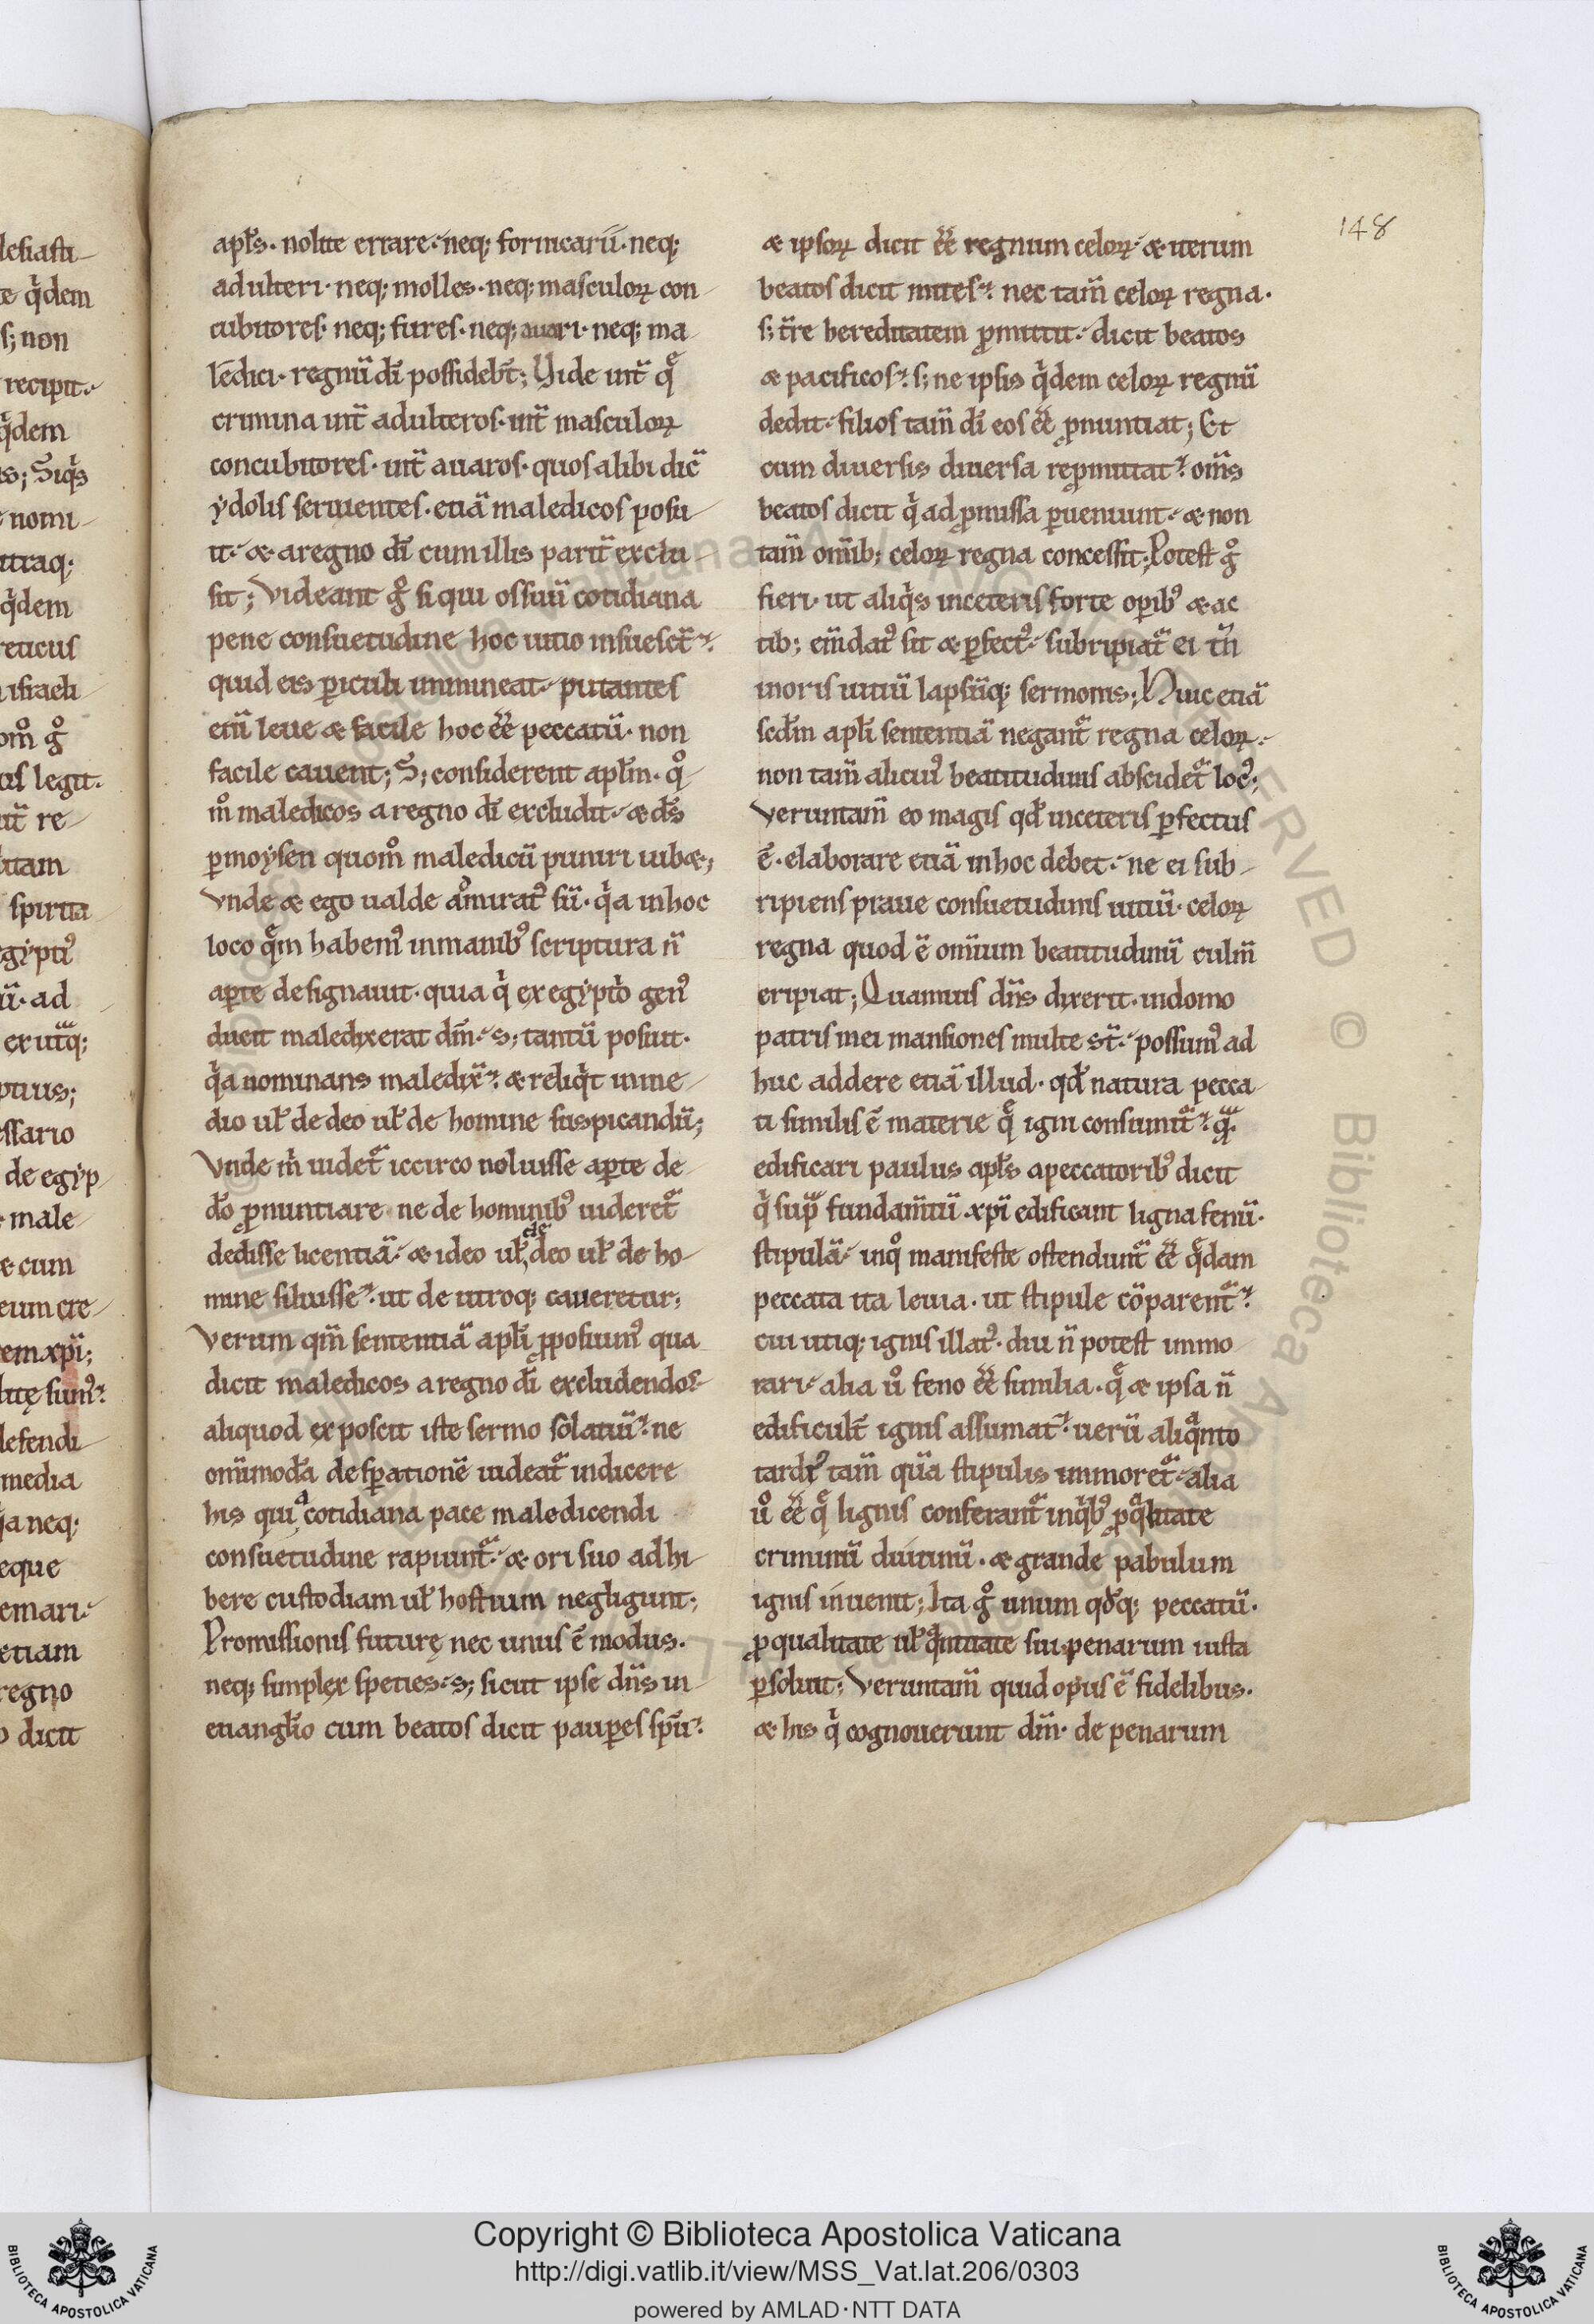 apƚs. nolite errare. neq; fornicarii. neq;
adulteri. neq; molles. neq; masculoꝝ con-
cubitores. neq; fures. neq; auari. neq; ma-
ledici. regnū dī possidebt̄; Vide int̄ q̄
crimina int̄ adulteros. int̄ masculoꝝ
concubitores. int̄ auaros. quos alibi dic̄
ẏdolis seruientes. etiā maledicos posu-
it. & a regno dī cum illis parit̄ exclu-
sit; Videant gͦ si qui ossuū cotidiana
pene consuetudine hoc uitio insuesct̄.
quid eis ꝑiculi immineat. putantes
enī leue & facile hoc ēē peccatū. non
facile cauent; S; considerent apƚm. qͦ-
mͦ maledicos a regno dī excludit. & ds̄
ꝑ moẏsen quomͦ maledicū puniri iub&;
Vnde & ego ualde āmiratꝰ sū. qͥa in hoc
loco q̄m habemꝰ in manibꝰ scriptura n̄
aꝑte designauit. quia qͥ ex egẏptio genꝰ
ducit maledixerat dm̄. s; tantū posuit.
qͥa nominans maledix̄. & reliqͥt in me-
dio uƚ de deo uƚ de homine suspicandū;
Vnde m̄ uidet᷑ iccirco noluisse aꝑte de
do ꝓnuntiare ne de hominibꝰ uideret᷑
dedisse licentiā. & ideo uƚ de deo uƚ de ho-
mine siluisse. ut de utroq; caueretur;
Verum qm̄ sententiā apƚi ꝓposuimꝰ qua
dicit maledicos a regno dī excludendos.
aliquod exposcit iste sermo solatiū. ne
omīmoda desꝑationē uideat᷑ indicere
his qui a cotidiana pace maledicendi
consuetudine rapiunt᷑. & ori suo adhi-
bere custodiam uƚ hostium negligunt;
Promissionis futurę nec unus ē modus.
neq; simplex speties. s; sicut ipse dn̄s in
euangƚio cum beatos dicit pauꝑes spū.
& ipsoꝝ dicit ēē regnum celoꝝ. & iterum
beatos dicit mites. nec tam̄ celoꝝ regna.
s; t̄re hereditatem ꝓmittit. dicit beatos
& pacificos. s; ne ipsis qͥdem celoꝝ regnū
dedit. filios tam̄ dī eos ēē ꝓnuntiat; Et
cum diuersis diuersa reꝓmittat. om̄s
beatos dicit qͥ ad ꝓmissa ꝑueniunt. & non
tam̄ omīb; celoꝝ regna concessit; Potest gͦ
fieri. ut aliqͥs in ceteris forte oꝑibꝰ & ac-
tib; em̄datꝰ sit & ꝑfectꝰ. subripiat᷑ ei tn̄
moris uitiū lapsūq; sermonis; Huic etiā
scd̄m apƚi sententiā negant᷑ regna celoꝝ.
non tam̄ alicuiꝰ beatitudinis abscidet᷑ locꝰ;
Veruntam̄ eo magis qd̄ in ceteris ꝑfectus
ē. elaborare etiā in hoc debet. ne ei sub-
ripiens praue consuetudinis uitiū. celoꝝ
regna quod ē omīum beatitudinū culm̄
eripiat; Quamuis dn̄s dixerit. in domo
patris mei mansiones multe st̄. possumꝰ ad
huc addere etiā illud. qd̄ natura pecca-
ti similis ē materie q̄ igni consumit᷑. q̄
edificari paulus apƚs a peccatoribꝰ dicit
qͥ sup̄ fundam̄tū xp̄i edificant ligna fenū.
stipulā. in qͦ manifeste ostendunt᷑ ēē q̄dam
peccata ita leuia. ut stipule cōparent᷑.
cui utiq; ignis illatꝰ. diu n̄ potest immo-
rari. alia uͦ feno ēē similia. q̄ & ipsa n̄
edificult̄ ignis assumat. uerū aliqͣnto
tardiꝰ tam̄ quā stipulis immoret᷑. alia
uͦ ēē q̄ lignis conferant᷑ in qͥbꝰ ꝓ qͣlitate
criminū diutinū. & grande pabulum
ignis inuenit; Ita gͦ unum qd̄q; peccatū.
ꝓ qualitate uƚ qͣntitate sui penarum iusta
ꝑsoluit; Veruntam̄ quid opus ē fidelibus.
& his qͥ cognouerunt dm̄. de penarum
148
lesiasti-
e qͥdem
s; non
recipit.
qͥdem
s; Siqͥs
nomi-
utraq;
qͥdem
reticus
israeli-
omͦ gͦ
us legit.
re-
spiritu
egẏptiꝰ
ū. ad
ex utͣq;
ptius;
essario
de egẏp-
male-
e cum
eum cre-
em xp̄i;
litę sumꝰ.
defendi-
media
qͥa neq;
eque
emari.
etiam
regno
o dicit
Copyright © Biblioteca Apostolica Vaticana
http://digi.vatlib.it/view/MSS_Vat.lat.206/0303
powered by AMLAD·NTT DATA
BIBLIOTECA APOSTOLICA VATICANA
BIBLIOTECA APOSTOLICA VATICANA